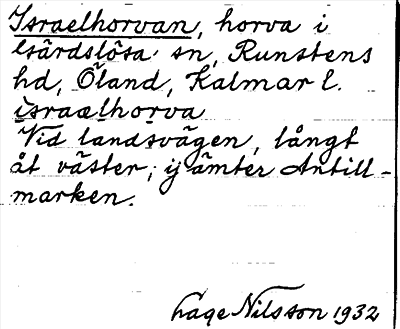 Israelhorvan, horva i
Gärdslösa sn, Runstens
hd, Öland, Kalmar l.
israelhorva
Vid landsvägen, långt
åt väster, ij ämter Antill-
marken.
Lage Nilsson 1932